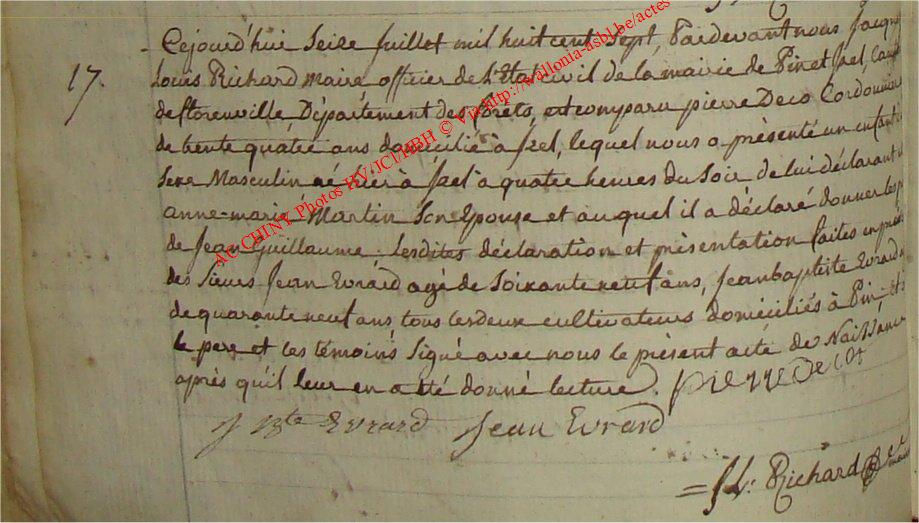 17.
Cejourd'hui Seize Juillet mil huit cent Sept, Pardevant nous Jacque
Louis Richard Maire officier de L'Etat civil de la mairie de Pin et Izel, Canton
de florenville, Département des forets, est comparu pierre Deco Cordonnier
de trente quatre ans domicilié à Izel, lequel nous a présenté un enfant
Sexe Masculin né hier à Izel à quatre heures du Soir de lui déclarant
anne-marie Martin Son Epouse et auquel il a déclaré donner les
de Jean Guillaume. Lesdites déclaration et présentation faites en
des Sieurs Jean Evrard agé de Soixante neuf ans, Jean baptiste Evrard
de quarante neuf ans tous les deux cultivateurs domiciliés à Pin
le pere et les témoins Signé avec nous le présent acte de Naissance
après qu'il leur en a été donné lecture. pierre Deco
J Bte Evrard Jean Evrard
= JL: Richard
AC CHINY Photos HV/JCI/HBH © Via http://wallonia-asbl.be/actes